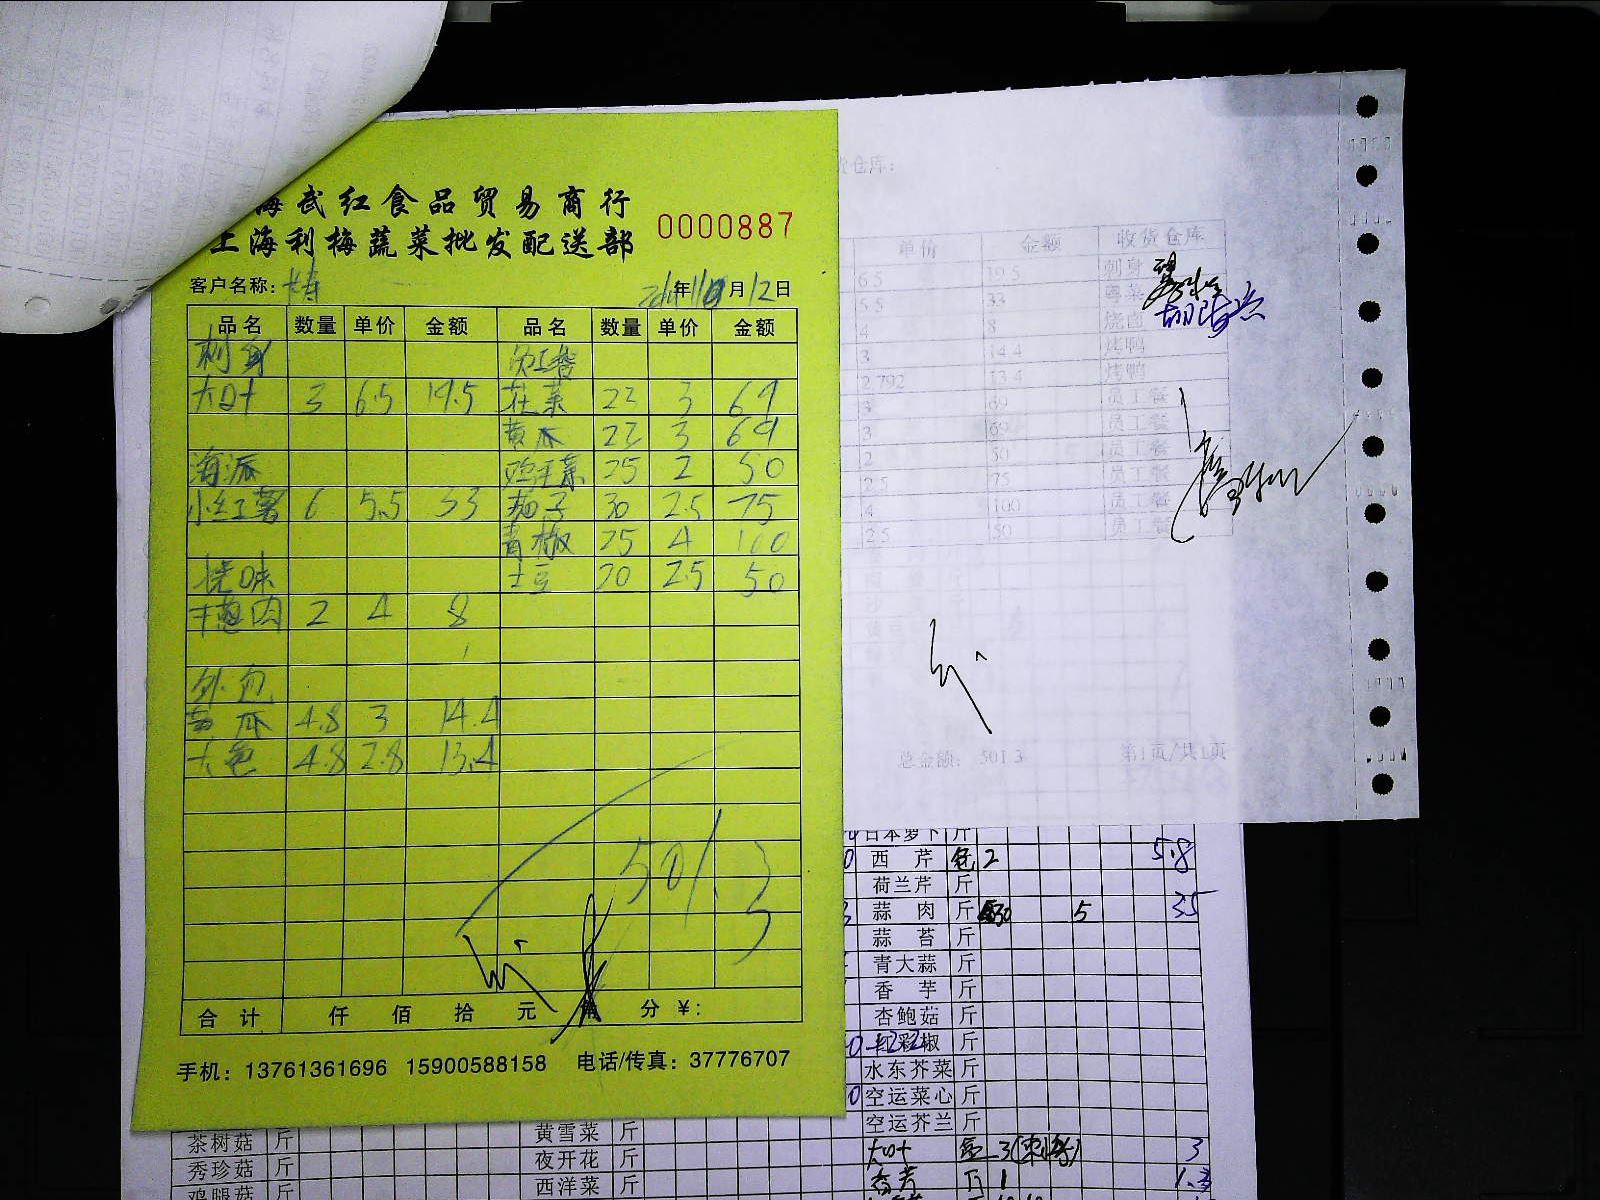 海武红食品贸易商行
上海利梅蔬菜批发配送部
0000887
客户名称:
年 月12日
品名 数量 单价 金额 品名 数量 单价 金额
刺身 员工餐
大叶 3 6.5 19.5 花菜 23 3 69
黄瓜 23 3 69
海派 25 2 50
小红薯 6 5.5 33 茄子 30 2.5 75
青椒 25 4 100
烧味 土豆 20 2.5 50
干葱肉 2 4 8
外包
黄瓜 4.8 3 14.4
大葱 4.8 2.8 13.4
501.3
合计 仟 佰 拾 元 角 分 ¥:
手机: 13761361696 15900588158 电话/传真: 37776707
货仓库:
单价 金额 收货仓库
6.5 19.5 刺身
5.5 33 粤菜
4 8 烧卤
3 14.4 烤鸭
2.792 13.4 烤鸭
3 69 员工餐
3 69 员工餐
2 50 员工餐
2.5 75 员工餐
4 100 员工餐
2.5 50 员工餐
总金额: 501.3 第1页/共1页
日本萝卜 斤
西芹 2 5.8
荷兰芹 斤
蒜肉 斤 5 35
蒜苔 斤
青大蒜 斤
香芋 斤
杏鲍菇 斤
红彩椒 斤
水东芥菜 斤
空运菜心 斤
空运芥兰 斤
茶树菇 斤 黄雪菜 斤
大叶 3 3
秀珍菇 斤 夜开花 斤
斤 1
鸡腿菇 斤 西洋菜 斤